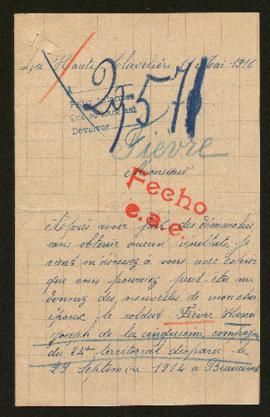 La Haute Clavenière, Mai 1916
2,571
Devolver
Fievre
Monsieur
Fecho
e.a.e
Après avoir fait des démarches
sans obtenir aucun résultat, je
vient m'adressez à vous avec l'espoir
que vous pourriez peut etre me
donnez des nouvelles de mon cher
époux, le soldat Fievre
Joseph de la cinquieme compagnie
du 84e territorial disparu le
29 Septembre 1914 à